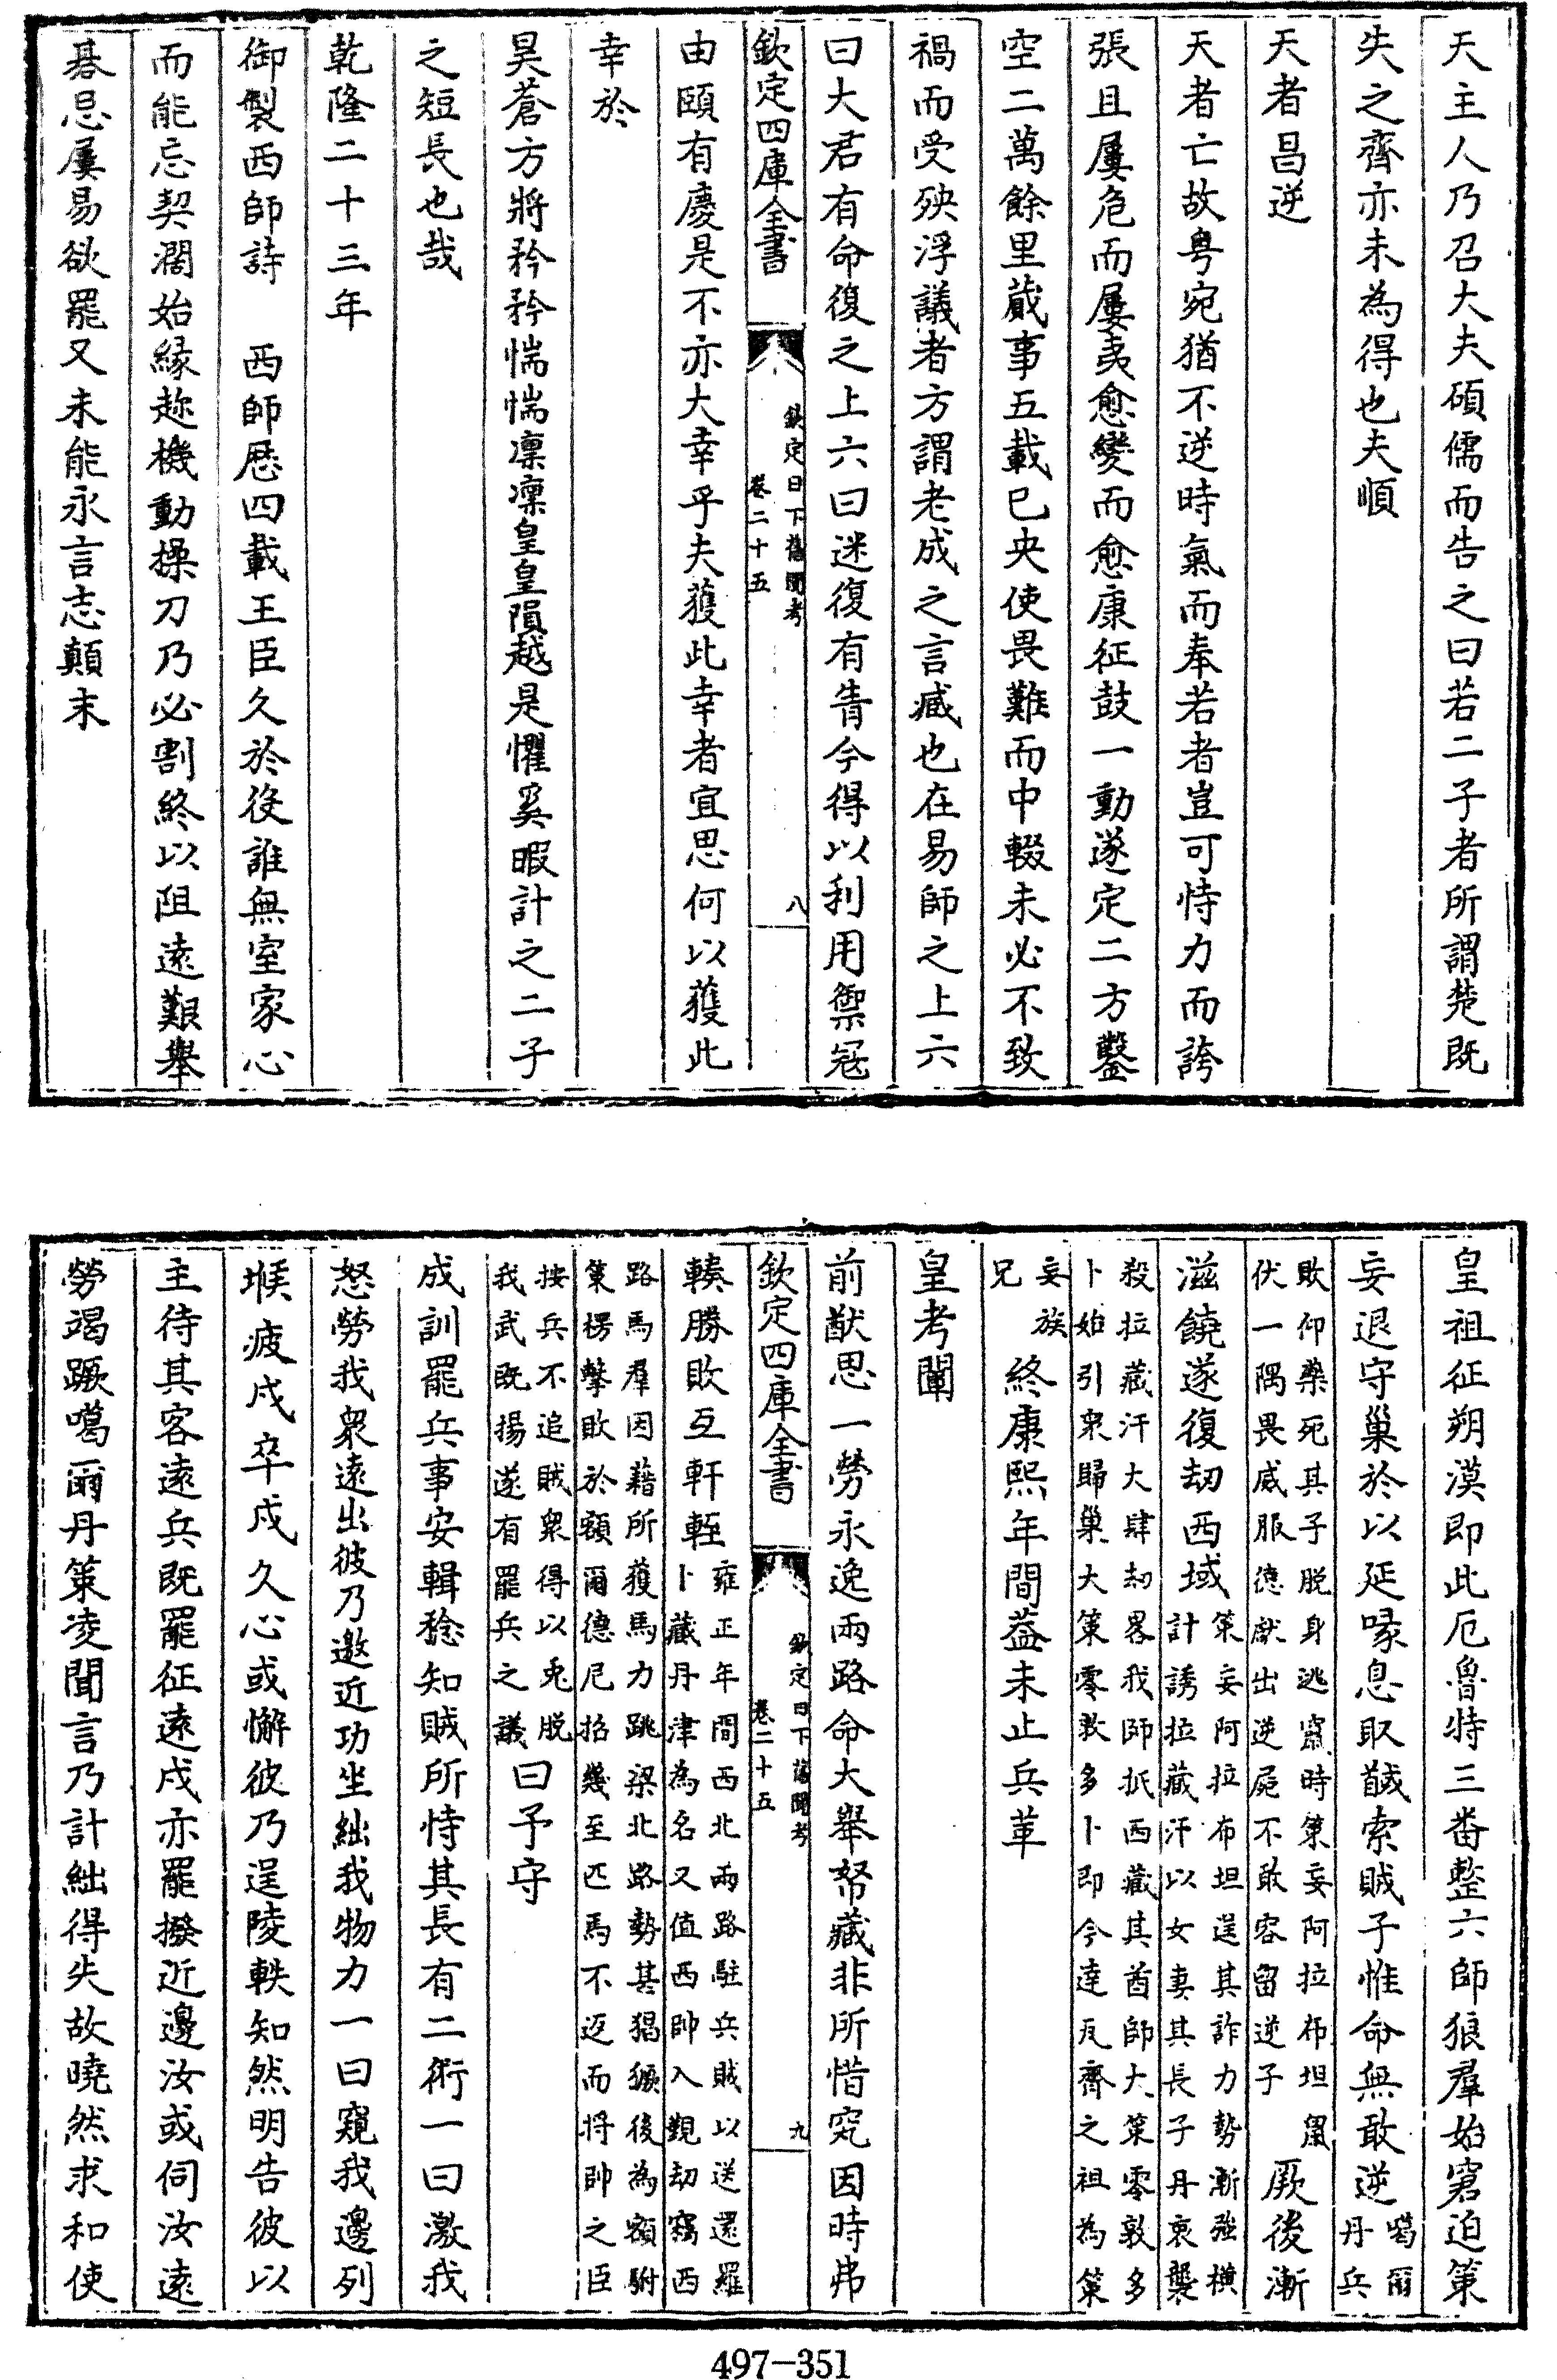 天主人乃召大夫碩儒而告之曰若二子者所謂楚既
失之齊亦未為得也夫順
天者昌逆
天者亡故粤宛猶不逆時氣而奉若者豈可恃力而誇
張且屢危而屢夷愈變而愈康征鼓一動遂定二方鑿
空二萬餘里蕆事五載已央使畏難而中輟未必不致
禍而受殃浮議者方謂老成之言臧也在易師之上六
曰大君有命復之上六曰迷復有眚今得以利用禦寇
欽定四庫全書
欽定日下舊聞考
卷二十五
八
由頤有慶是不亦大幸乎夫獲此幸者宜思何以獲此
幸於
昊蒼方將矜矜惴惴凜凜皇皇隕越是懼奚暇計之二子
之短長也哉
乾隆二十三年
御製西師詩 西師歴四載王臣久於役誰無室家心
而能忘契濶始緣趂機動操刀乃必割終以阻遠艱舉
碁思屢易欲罷又未能永言志顛末
皇祖征朔漠即此厄魯特三番整六師狼羣始窘迫策
妄退守巢於以延喙息取馘索賊子惟命無敢逆噶爾
丹兵
敗仰藥死其子脱身逃竄時策妄阿拉布坦鼠
伏一隅畏威服德獻出逆屍不敢容留逆子
厥後漸
滋饒遂復刧西域策妄阿拉布坦逞其詐力勢漸強横
計誘拉藏汗以女妻其長子丹衷襲
殺拉藏汗大肆刼畧我師抵西藏其酋師大策零敦多
卜始引衆歸巢大策零敦多卜即今達瓦齊之祖為策
妄族
兄
終康熙年間葢未止兵革
皇考闡
前猷思一勞永逸兩路命大舉帑藏非所惜究因時弗
欽定四庫全書
欽定日下舊聞考
卷二十五
九
輳勝敗互軒輊雍正年間西北兩路駐兵賊以送還羅
卜藏丹津為名又值西帥入覲刼竊西
路馬羣因藉所獲馬力跳梁北路勢甚猖獗後為額駙
策楞擊敗於額爾德尼招幾至匹馬不返而將帥之臣
按兵不追賊衆得以兎脱
我武既揚遂有罷兵之議
曰予守
成訓罷兵事安輯稔知賊所恃其長有二術一曰激我
怒勞我衆遠出彼乃邀近功坐絀我物力一曰窺我邊列
堠疲戍卒戍久心或懈彼乃逞陵軼知然明告彼以
主待其客遠兵既罷征遠戍亦罷撥近邊汝或伺汝遠
勞竭蹶噶爾丹策凌聞言乃計絀得失故曉然求和使
497-351